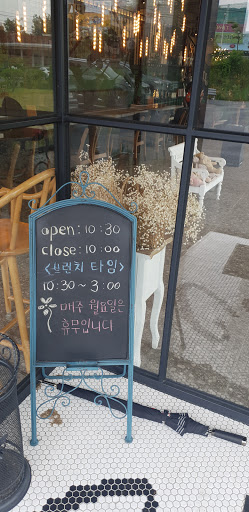 open : 10 : 30
close : 10 : 00
<브런치 타임>
10:30 ~ 3:00
매주 월요일은
휴무입니다